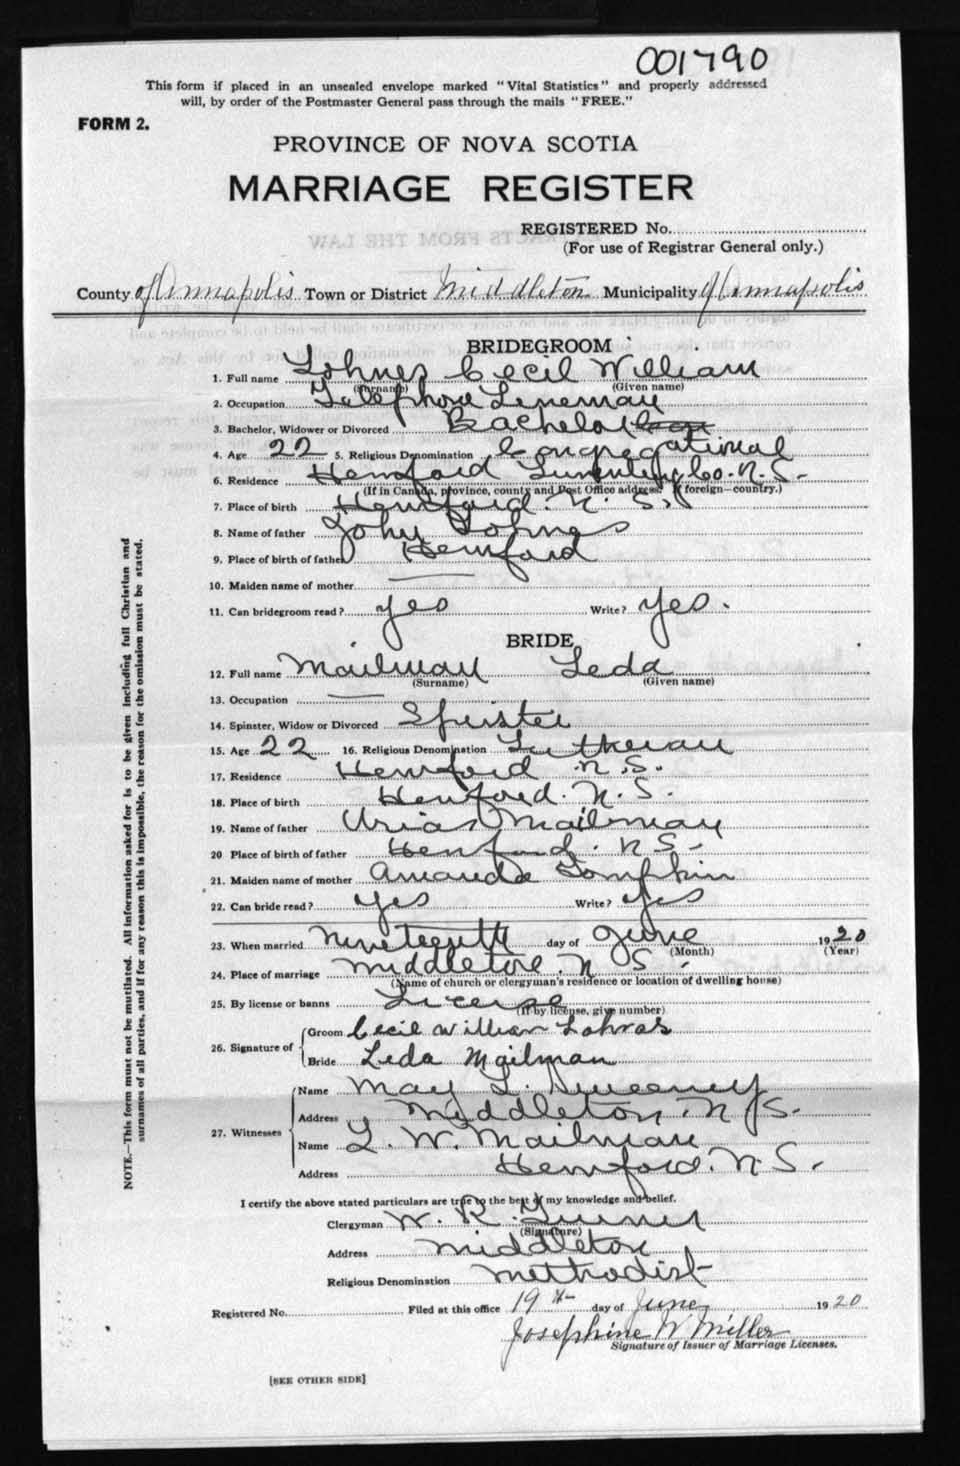 001790
This form if placed in an unsealed envelope marked "Vital Statistics" and properly addressed
will, by order of the Postmaster General pass through the mails "FREE."
FORM 2.
PROVINCE OF NOVA SCOTIA
MARRIAGE REGISTER
REGISTERED No.
(For use of Registrar General only.)
County of Annapolis Town or District Middleton Municipality of Annapolis
BRIDEGROOM
1. Full name Lohnes Cecil William
(Surname) (Given name)
2. Occupation Telephone Lineman
3. Bachelor, Widower or Divorced Bachelor
4. Age 22 5. Religious Denomination Congregational
6. Residence Hemford Lunenburg Co. N.S.
(If in Canada, province, county and Post Office address. If foreign—country.)
7. Place of birth Hemford. N. S.
8. Name of father John Lohnes
9. Place of birth of father Hemford
10. Maiden name of mother —
11. Can bridegroom read? yes Write? yes.
BRIDE
12. Full name Mailman Leda
(Surname) (Given name)
13. Occupation —
14. Spinster, Widow or Divorced Spinster
15. Age 22 16. Religious Denomination Lutheran
17. Residence Hemford N.S.
18. Place of birth Hemford. N. S.
19. Name of father Urias Mailman
20 Place of birth of father Hemford. N S-
21. Maiden name of mother Amanda
22. Can bride read? yes Write? yes
23. When married Nineteenth day of June 1920
(Month) (Year)
24. Place of marriage Middleton. N. S.
(Name of church or clergyman's residence or location of dwelling house)
25. By license or banns License
(If by license, give number)
26. Signature of Groom Cecil William Lohnas
Bride Leda Mailman
27. Witnesses Name May L. Sweeney
Address Middleton, N.S.
Name L. W. Mailman
Address Hemford. N. S.
I certify the above stated particulars are true to the best of my knowledge and belief.
Clergyman W. R. Turner
(Signature)
Address Middleton
Religious Denomination Methodist
Registered No. Filed at this office 19th day of June 1920
Josephine W Miller
Signature of Issuer of Marriage Licenses.
[SEE OTHER SIDE]
NOTE.—This form must not be mutilated. All information asked for is to be given including full Christian and
surnames of all parties, and if for any reason this is impossible, the reason for the omission must be stated.